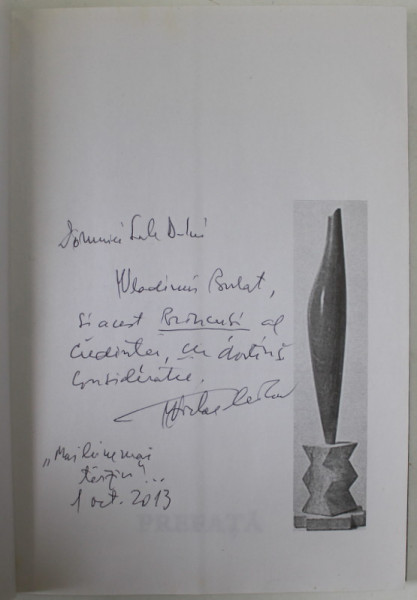 Domniei Sale D-lui
Vladimir Bulat,
și acest Brâncuși al
Credinței, cu deosebită
Considerație.
„Mai bine mai
târziu"...
1 oct. 2013
PREFAȚĂ